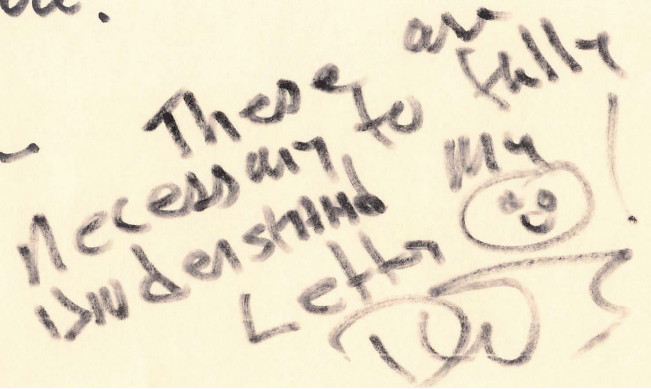 These are
Necessary to fully
Understand my
Letter !